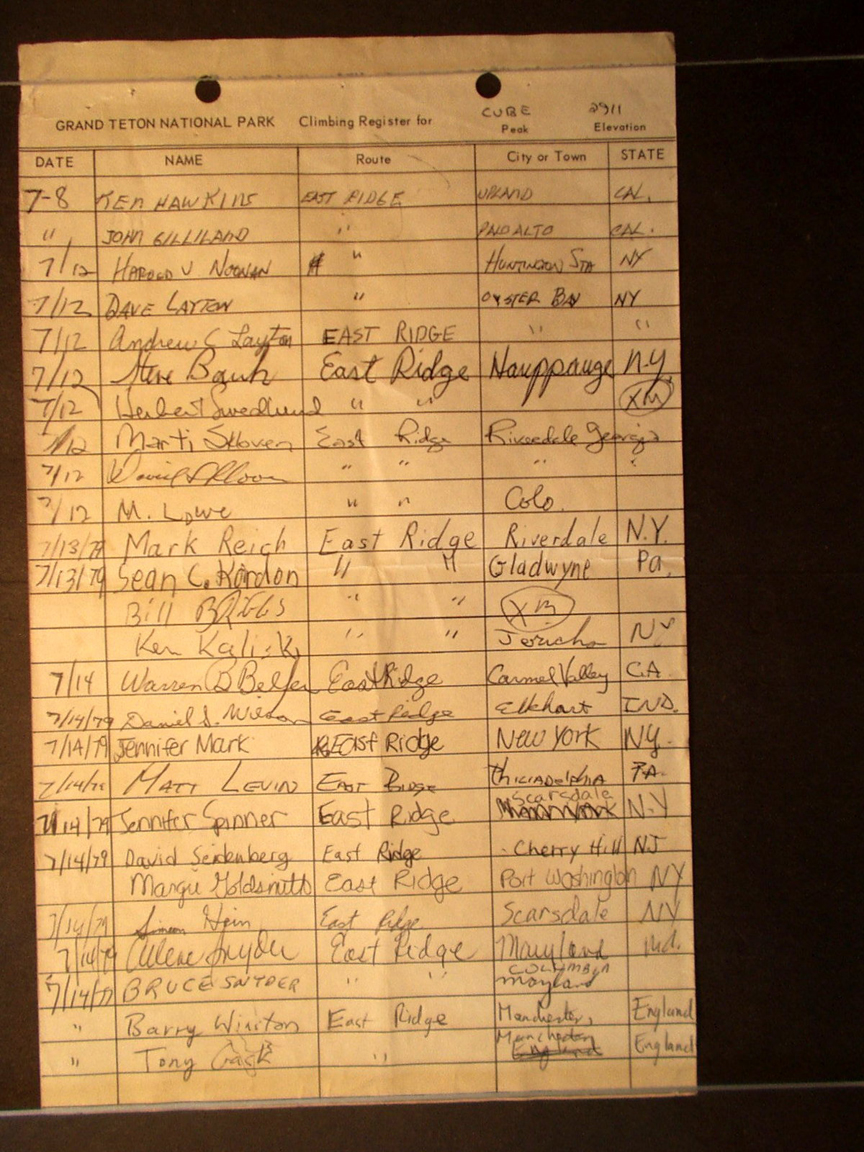 GRAND TETON NATIONAL PARK Climbing Register for CUBE Peak 2911 Elevation
DATE NAME Route City or Town STATE
7-8 KEN HAWKINS EAST RIDGE UPLAND CAL.
" JOHN GILLILAND " PALO ALTO CAL.
7/12 HAROLD V NOONAN " HUNTINGTON STA NY
7/12 DAVE LAYTON " OYSTER BAY NY
7/12 Andrew C Layton EAST RIDGE " "
7/12 Steve East Ridge Hauppauge N.Y.
7/12 Herbert Swedlund " " XM
7/12 Marti Skloven East Ridge Riverdale Georgia
7/12 David " " " "
7/12 M. Lowe " " Colo.
7/13/79 Mark Reich East Ridge Riverdale N.Y.
7/13/79 Sean C. Kardon " " Gladwyne Pa.
Bill BRIGGS " " XM
Ken Kaliski " " Jericho NY
7/14 Warren D East Ridge Carmel Valley CA
7/14/79 Daniel S. Wilson East Ridge Elkhart IND.
7/14/79 Jennifer Mark EAST Ridge NEW YORK NY.
7/14/79 MATT LEVIN EAST RIDGE PHILIADELPHIA PA.
7/14/79 Jennifer Spinner East Ridge Scarsdale N.Y
7/14/79 David Seidenberg East Ridge Cherry Hill NJ
Margie Goldsmith East Ridge Port Washington NY
7/14/79 Simon East Ridge Scarsdale NY
7/14/79 Arlene Snyder East Ridge Maryland Md.
7/14/79 BRUCE SNYDER " " COLUMBIA Maryland
" Barry Winston East Ridge Manchester, England
" Tony " Manchester England